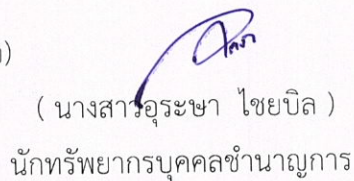 )
( นางสาวอุระษา ไชยบิล )
นักทรัพยากรบุคคลชำนาญการ